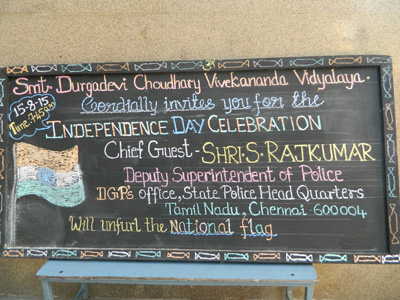 ॐ
Smt. Durgadevi Choudhary Vivekananda Vidyalaya.
15-8-15
Time:-7.45am
Cordially invites you for the
INDEPENDENCE DAY CELEBRATION
Chief Guest - SHRI.S.RAJKUMAR
Deputy Superintendent of Police
DGP's office, State Police Head Quarters
Tamil Nadu, Chennai 600004
Will unfurl the National flag